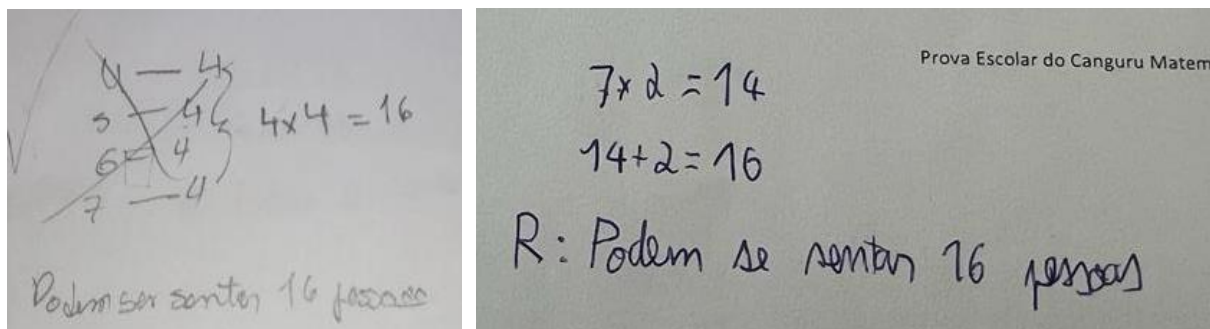 4 — 4
5 — 4
6 — 4
7 — 4
4x4 = 16
Podem ser sentar 16 pessoas
Prova Escolar do Canguru Matem
7x2 = 14
14+2 = 16
R: Podem se sentar 16 pessoas